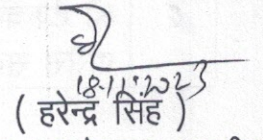 18.11.2023
( हरेन्द्र सिंह )